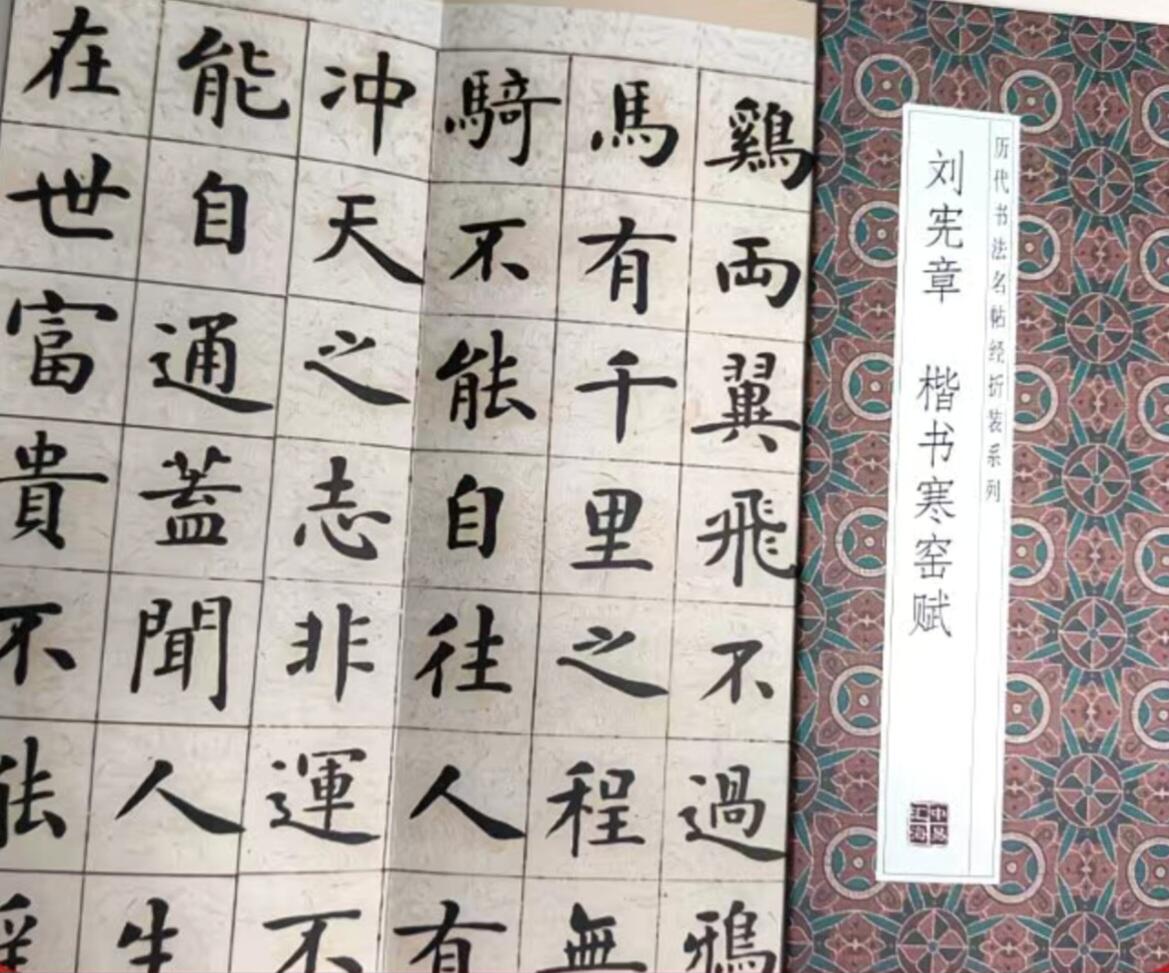 历代书法名帖经折装系列
刘宪章 楷书寒窑赋
鷄両翼飛不過鴉
馬有千里之程無
騎不能自往人有
冲天之志非運不
能自通蓋聞人生
在世富貴不能